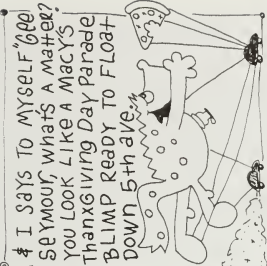 & I SAYS TO MYSELF "Gee
SEYMOUR, WHAT'S A MATTER?
YOU LOOK LIKE A MACY'S
THANXGIVING DAY PARADE
BLIMP READY TO FLOAT
DOWN 5th AVE.